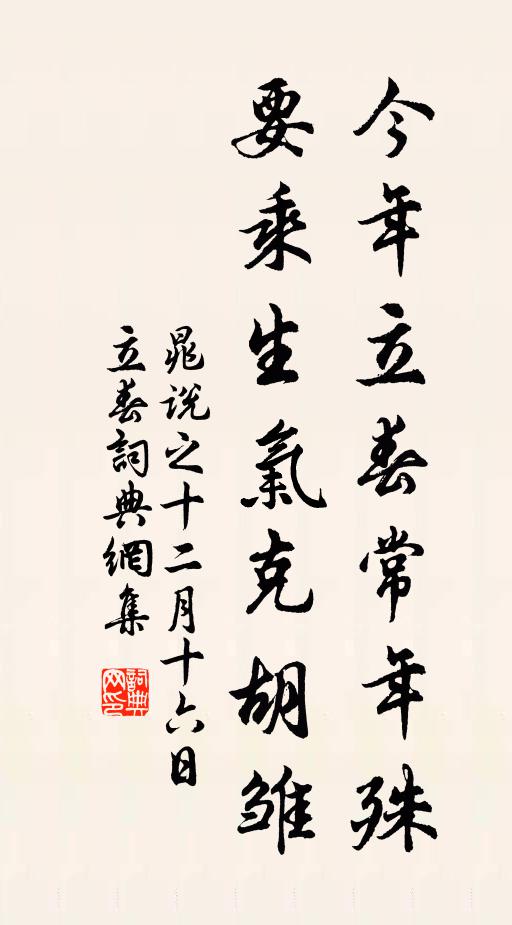 今年立春常年殊
要乘生氣克胡雏
晁説之十二月十六日
立春詞典網集
詞典网印